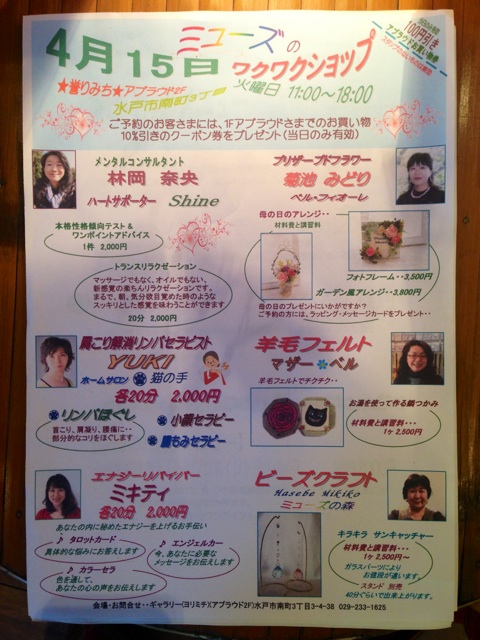 4月15日 ミューズの
ワクワクショップ
100円引き
アプラウドお買い物券
★誉りみち★アプラウド2F
水戸市南町3丁目
火曜日 11:00～18:00
ご予約のお客さまには、1Fアプラウドさまでのお買い物
10%引きのクーポン券をプレゼント(当日のみ有効)
メンタルコンサルタント
林岡 奈央
ハートサポーター Shine
本格性格傾向テスト&
ワンポイントアドバイス
1件 2,000円
トランスリラクゼーション
マッサージでもなく、オイルでもない、
新感覚の楽ちんリラクゼーションです。
まるで、朝、気分欲目覚めた時のような
スッキリとした感覚を味わうことができます
20分 2,000円
プリザーブドフラワー
菊池 みどり
ベル・フィオーレ
母の日のアレンジ・・
材料費と講習料
フォトフレーム・・3,500円
ガーデン風アレンジ・・3,800円
母の日のプレゼントにいかがですか?
ご予約の方には、ラッピング・メッセージカードをプレゼント・・
肩こり解消リンパセラピスト
YUKI
ホームサロン 猫の手
各20分 2,000円
リンパほぐし
首こり、肩凝り、腰痛に・・
部分的なコリをほぐします
小顔セラピー
腸もみセラピー
羊毛フェルト
マザー ベル
羊毛フェルトでチクチク・・
お湯を使って作る鍋つかみ
材料費と講習料・・・
1ケ 2,500円
エナジーリバイバー
ミキティ
各20分 2,000円
あなたの内に秘めたエナジーを上げるお手伝い
♪ タロットカード
具体的な悩みにお答えします
♪ エンジェルカード
今、あなたに必要な
メッセージをお伝えします
♪ カラーセラピー
色を通して、
あなたの心の声をお伝えします
ビーズクラフト
Hasebe Mikiko
ミューズの森
キラキラ サンキャッチャー
材料費と講習料・・・
1ケ 2,000円～
ガラスパーツにより
お値段が違います。
スタンド 別売
40分ぐらいで出来上がります。
会場・お問合せ・・ギャラリー(ヨリミチ)(アプラウド2F)水戸市南町3丁目3-4-38 029-233-1625